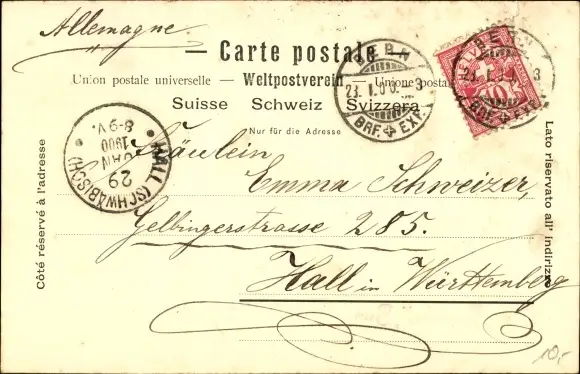 Allemagne
Carte postale
Union postale universelle — Weltpostverein — Unione postale
Suisse Schweiz Svizzera
Nur für die Adresse
BERN
BRF. EXP.
BERN
BRF. EXP.
HELVETIA
10
HALL (SCHWÄBISCH)
29
JAN
1900
8-9 V.
Fräulein
Emma Schweizer,
Gelbingerstrasse 285.
Hall in Württemberg
Côté réservé à l'adresse
Lato riservato all' indirizzo
10,-